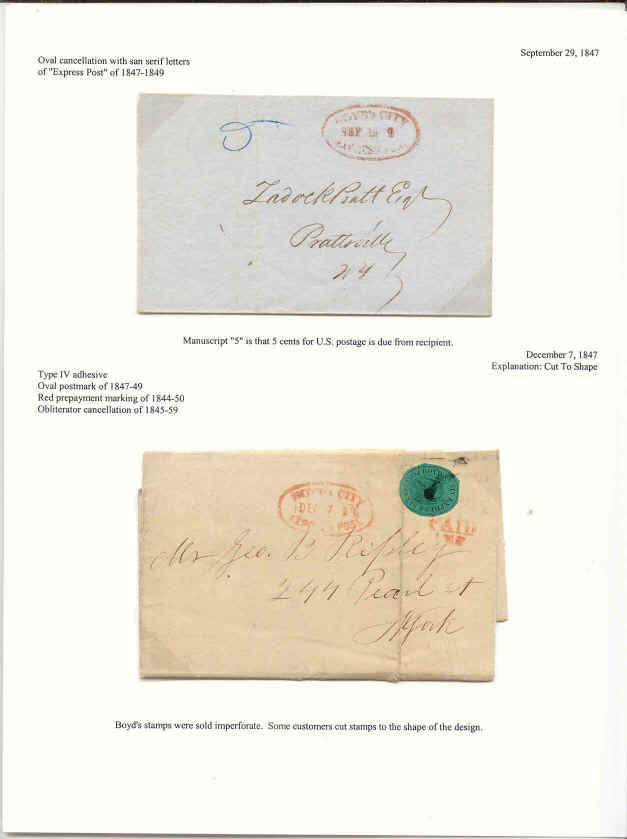 Oval cancellation with san serif letters
of "Express Post" of 1847-1849
September 29, 1847
BOYD'S CITY
SEP
Zadock Pratt Esq
Prattsville
N Y
Manuscript "5" is that 5 cents for U.S. postage is due from recipient.
December 7, 1847
Explanation: Cut To Shape
Type IV adhesive
Oval postmark of 1847-49
Red prepayment marking of 1844-50
Obliterator cancellation of 1845-59
BOYD'S CITY
DEC 7
POST
PAID
Mr Geo. B Ripley
244 Pearl st
NYork
Boyd's stamps were sold imperforate. Some customers cut stamps to the shape of the design.